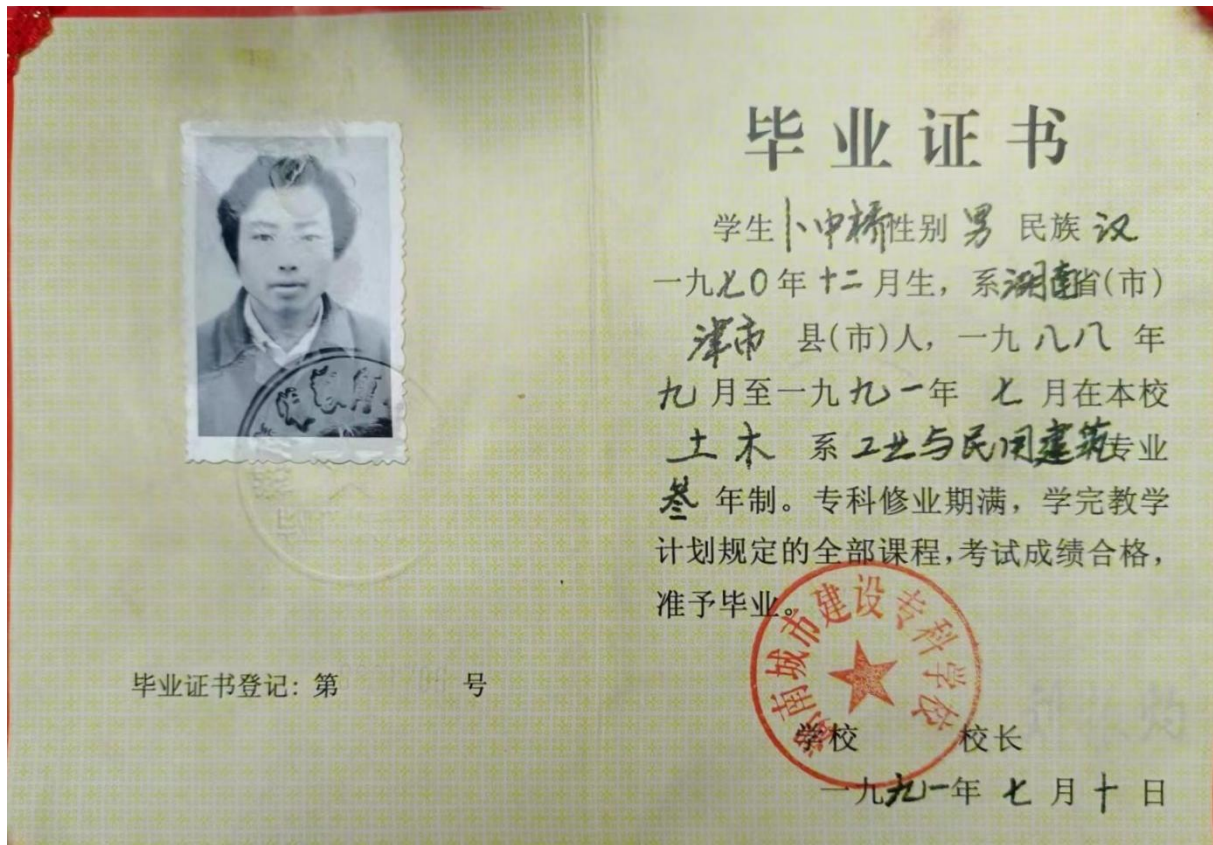 毕业证书
学生卜中桥性别 男 民族 汉
一九七0年十二月生，系湖南省(市)
津市 县(市)人，一九八八年
九月至一九九一年 七 月在本校
土木 系 工业与民间建筑专业
叁 年制。专科修业期满，学完教学
计划规定的全部课程，考试成绩合格，
准予毕业。
湖南城市建设专科学校
毕业证书登记：第 号
学校 校长
一九九一年七月十日